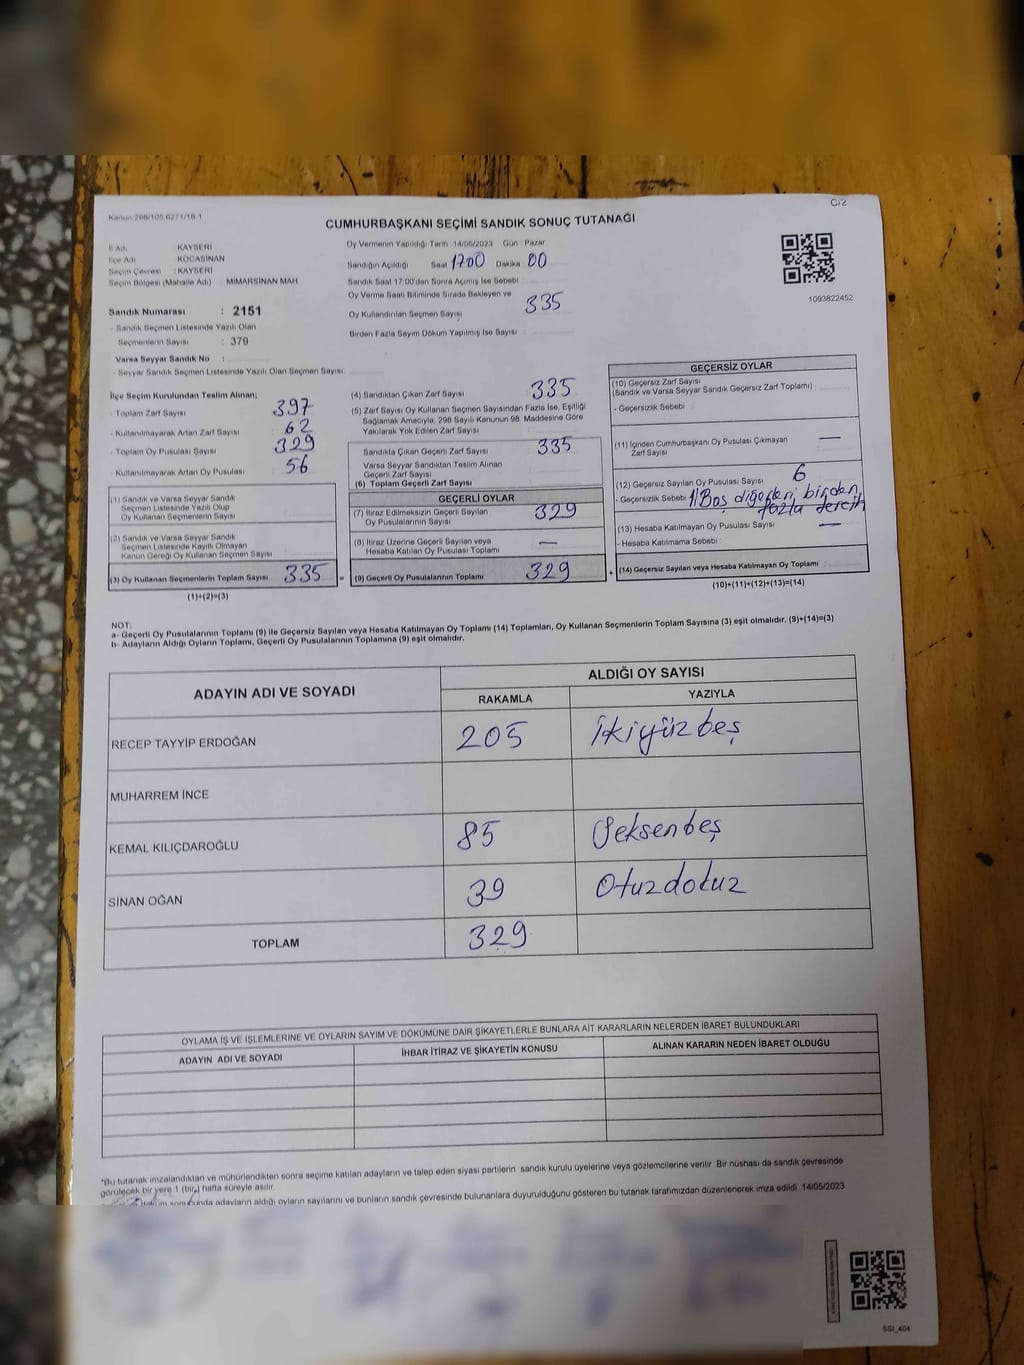 Kanun 298/105.627 1/18-1
C/2
CUMHURBAŞKANI SEÇİMİ SANDIK SONUÇ TUTANAĞI
İl Adı : KAYSERİ
İlçe Adı : KOCASİNAN
Seçim Çevresi : KAYSERİ
Seçim Bölgesi (Mahalle Adı) : MİMARSİNAN MAH
Oy Vermenin Yapıldığı Tarih :14/05/2023 Gün : Pazar
Sandığın Açıldığı Saat 1700 Dakika 00
Sandık Saat 17:00'den Sonra Açımış İse Sebebi
Oy Verme Saati Bitiminde Sırada Bekleyen ve
Oy Kullandırılan Seçmen Sayısı : 335
Birden Fazla Sayım Döküm Yapılmış İse Sayısı :
1093822452
Sandık Numarası : 2151
- Sandık Seçmen Listesinde Yazılı Olan
Seçmenlerin Sayısı : 379
Varsa Seyyar Sandık No :
- Seyyar Sandık Seçmen Listesinde Yazılı Olan Seçmen Sayısı:
İlçe Seçim Kurulundan Teslim Alınan;
- Toplam Zarf Sayısı : 397
- Kullanılmayarak Artan Zarf Sayısı : 62
- Toplam Oy Pusulası Sayısı : 329
- Kullanılmayarak Artan Oy Pusulası : 56
(1) Sandık ve Varsa Seyyar Sandık
Seçmen Listesinde Yazılı Olup
Oy Kullanan Seçmenlerin Sayısı
(2) Sandık ve Varsa Seyyar Sandık
Seçmen Listesinde Kayıtlı Olmayan
Kanun Gereği Oy Kullanan Seçmen Sayısı
(3) Oy Kullanan Seçmenlerin Toplam Sayısı 335
(1)+(2)=(3)
(4) Sandıktan Çıkan Zarf Sayısı : 335
(5) Zarf Sayısı Oy Kullanan Seçmen Sayısından Fazla İse, Eşitliği
Sağlamak Amacıyla, 298 Sayılı Kanunun 98. Maddesine Göre
Yakılarak Yok Edilen Zarf Sayısı :
Sandıkta Çıkan Geçerli Zarf Sayısı : 335
Varsa Seyyar Sandıktan Teslim Alınan
Geçerli Zarf Sayısı
(6) Toplam Geçerli Zarf Sayısı
GEÇERLİ OYLAR
(7) İtiraz Edilmeksizin Geçerli Sayılan
Oy Pusulalarının Sayısı 329
(8) İtiraz Üzerine Geçerli Sayılan veya
Hesaba Katılan Oy Pusulası Toplamı —
= (9) Geçerli Oy Pusulalarının Toplamı 329
GEÇERSİZ OYLAR
(10) Geçersiz Zarf Sayısı
(Sandık ve Varsa Seyyar Sandık Geçersiz Zarf Toplamı) :
- Geçersizlik Sebebi :
(11) İçinden Cumhurbaşkanı Oy Pusulası Çıkmayan
Zarf Sayısı —
(12) Geçersiz Sayılan Oy Pusulası Sayısı 6
- Geçersizlik Sebebi 1 Boş diğerleri birden
fazla tercih
(13) Hesaba Katılmayan Oy Pusulası Sayısı : —
- Hesaba Katılmama Sebebi :
+ (14) Geçersiz Sayılan veya Hesaba Katılmayan Oy Toplamı
(10)+(11)+(12)+(13)=(14)
NOT:
a- Geçerli Oy Pusulalarının Toplamı (9) ile Geçersiz Sayılan veya Hesaba Katılmayan Oy Toplamı (14) Toplamları, Oy Kullanan Seçmenlerin Toplam Sayısına (3) eşit olmalıdır. (9)+(14)=(3)
b- Adayların Aldığı Oyların Toplamı, Geçerli Oy Pusulalarının Toplamına (9) eşit olmalıdır.
ADAYIN ADI VE SOYADI
ALDIĞI OY SAYISI
RAKAMLA YAZIYLA
RECEP TAYYİP ERDOĞAN 205 İkiyüzbeş
MUHARREM İNCE
KEMAL KILIÇDAROĞLU 85 Seksenbeş
SİNAN OĞAN 39 Otuzdokuz
TOPLAM 329
OYLAMA İŞ VE İŞLEMLERİNE VE OYLARIN SAYIM VE DÖKÜMÜNE DAİR ŞİKAYETLERLE BUNLARA AİT KARARLARIN NELERDEN İBARET BULUNDUKLARI
ADAYIN ADI VE SOYADI İHBAR İTİRAZ VE ŞİKAYETİN KONUSU ALINAN KARARIN NEDEN İBARET OLDUĞU
*Bu tutanak imzalandıktan ve mühürlendikten sonra seçime katılan adayların ve talep eden siyasi partilerin sandık kurulu üyelerine veya gözlemcilerine verilir. Bir nüshası da sandık çevresinde
görülecek bir yere 1 (bir) hafta süreyle asılır.
sonucunda adayların aldığı oyların sayılarını ve bunların sandık çevresinde bulunanlara duyurulduğunu gösteren bu tutanak tarafımızdan düzenlenerek imza edildi. 14/05/2023
SSI_404